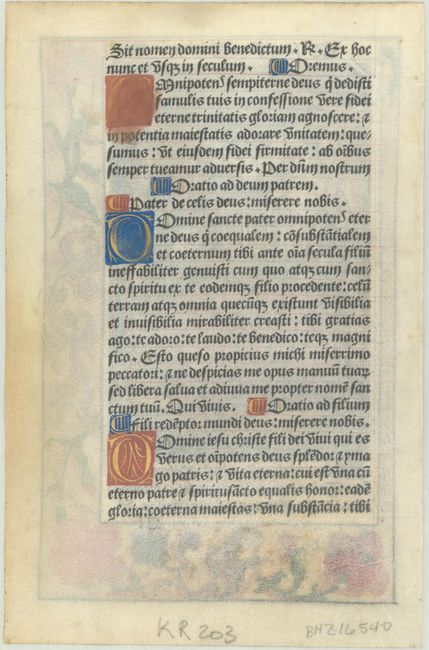 Sit nomen domini benedictum. R. Ex hoc
nunc et vsqz in seculum. Oremus.
Omnipotens sempiterne deus q̃ dedisti
famulis tuis in confessione vere fidei
eterne trinitatis gloriam agnoscere: ⁊
in potentia maiestatis adorare vnitatem: que-
sumus: vt eiusdem fidei firmitate: ab oĩbus
semper tueamur aduersis. Per dñm nostrum
Oratio ad deum patrem.
Pater de celis deus: miserere nobis.
Domine sancte pater omnipotens eter
ne deus q̃ coequalem: cõsubstãtialem
et coeternum tibi ante oĩa secula filiũ
ineffabiliter genuisti cum quo atqz cum san-
cto spiritu ex te eodemqz filio procedente: celũ
terram atqz omnia quecũqz existunt visibilia
et inuisibilia mirabiliter creasti: tibi gratias
ago: te adoro: te laudo: te benedico: teqz magni
fico. Esto queso propicius michi miserrimo
peccatori: ⁊ ne despicias me opus manuũ tuaꝝ
sed libera salua et adiuua me propter nomẽ san
ctum tuũ. Qui viuis. Oratio ad filium
Fili redẽptor: mundi deus: miserere nobis.
Domine iesu christe fili dei viui qui es
verus et oĩpotens deus splẽdor ⁊ yma
go patris: ⁊ vita eterna: cui est vna cũ
eterno patre ⁊ spiritusãcto equalis honor: eadẽ
gloria: coeterna maiestas: vna substãcia: tibi
KR 203
BHZ16540